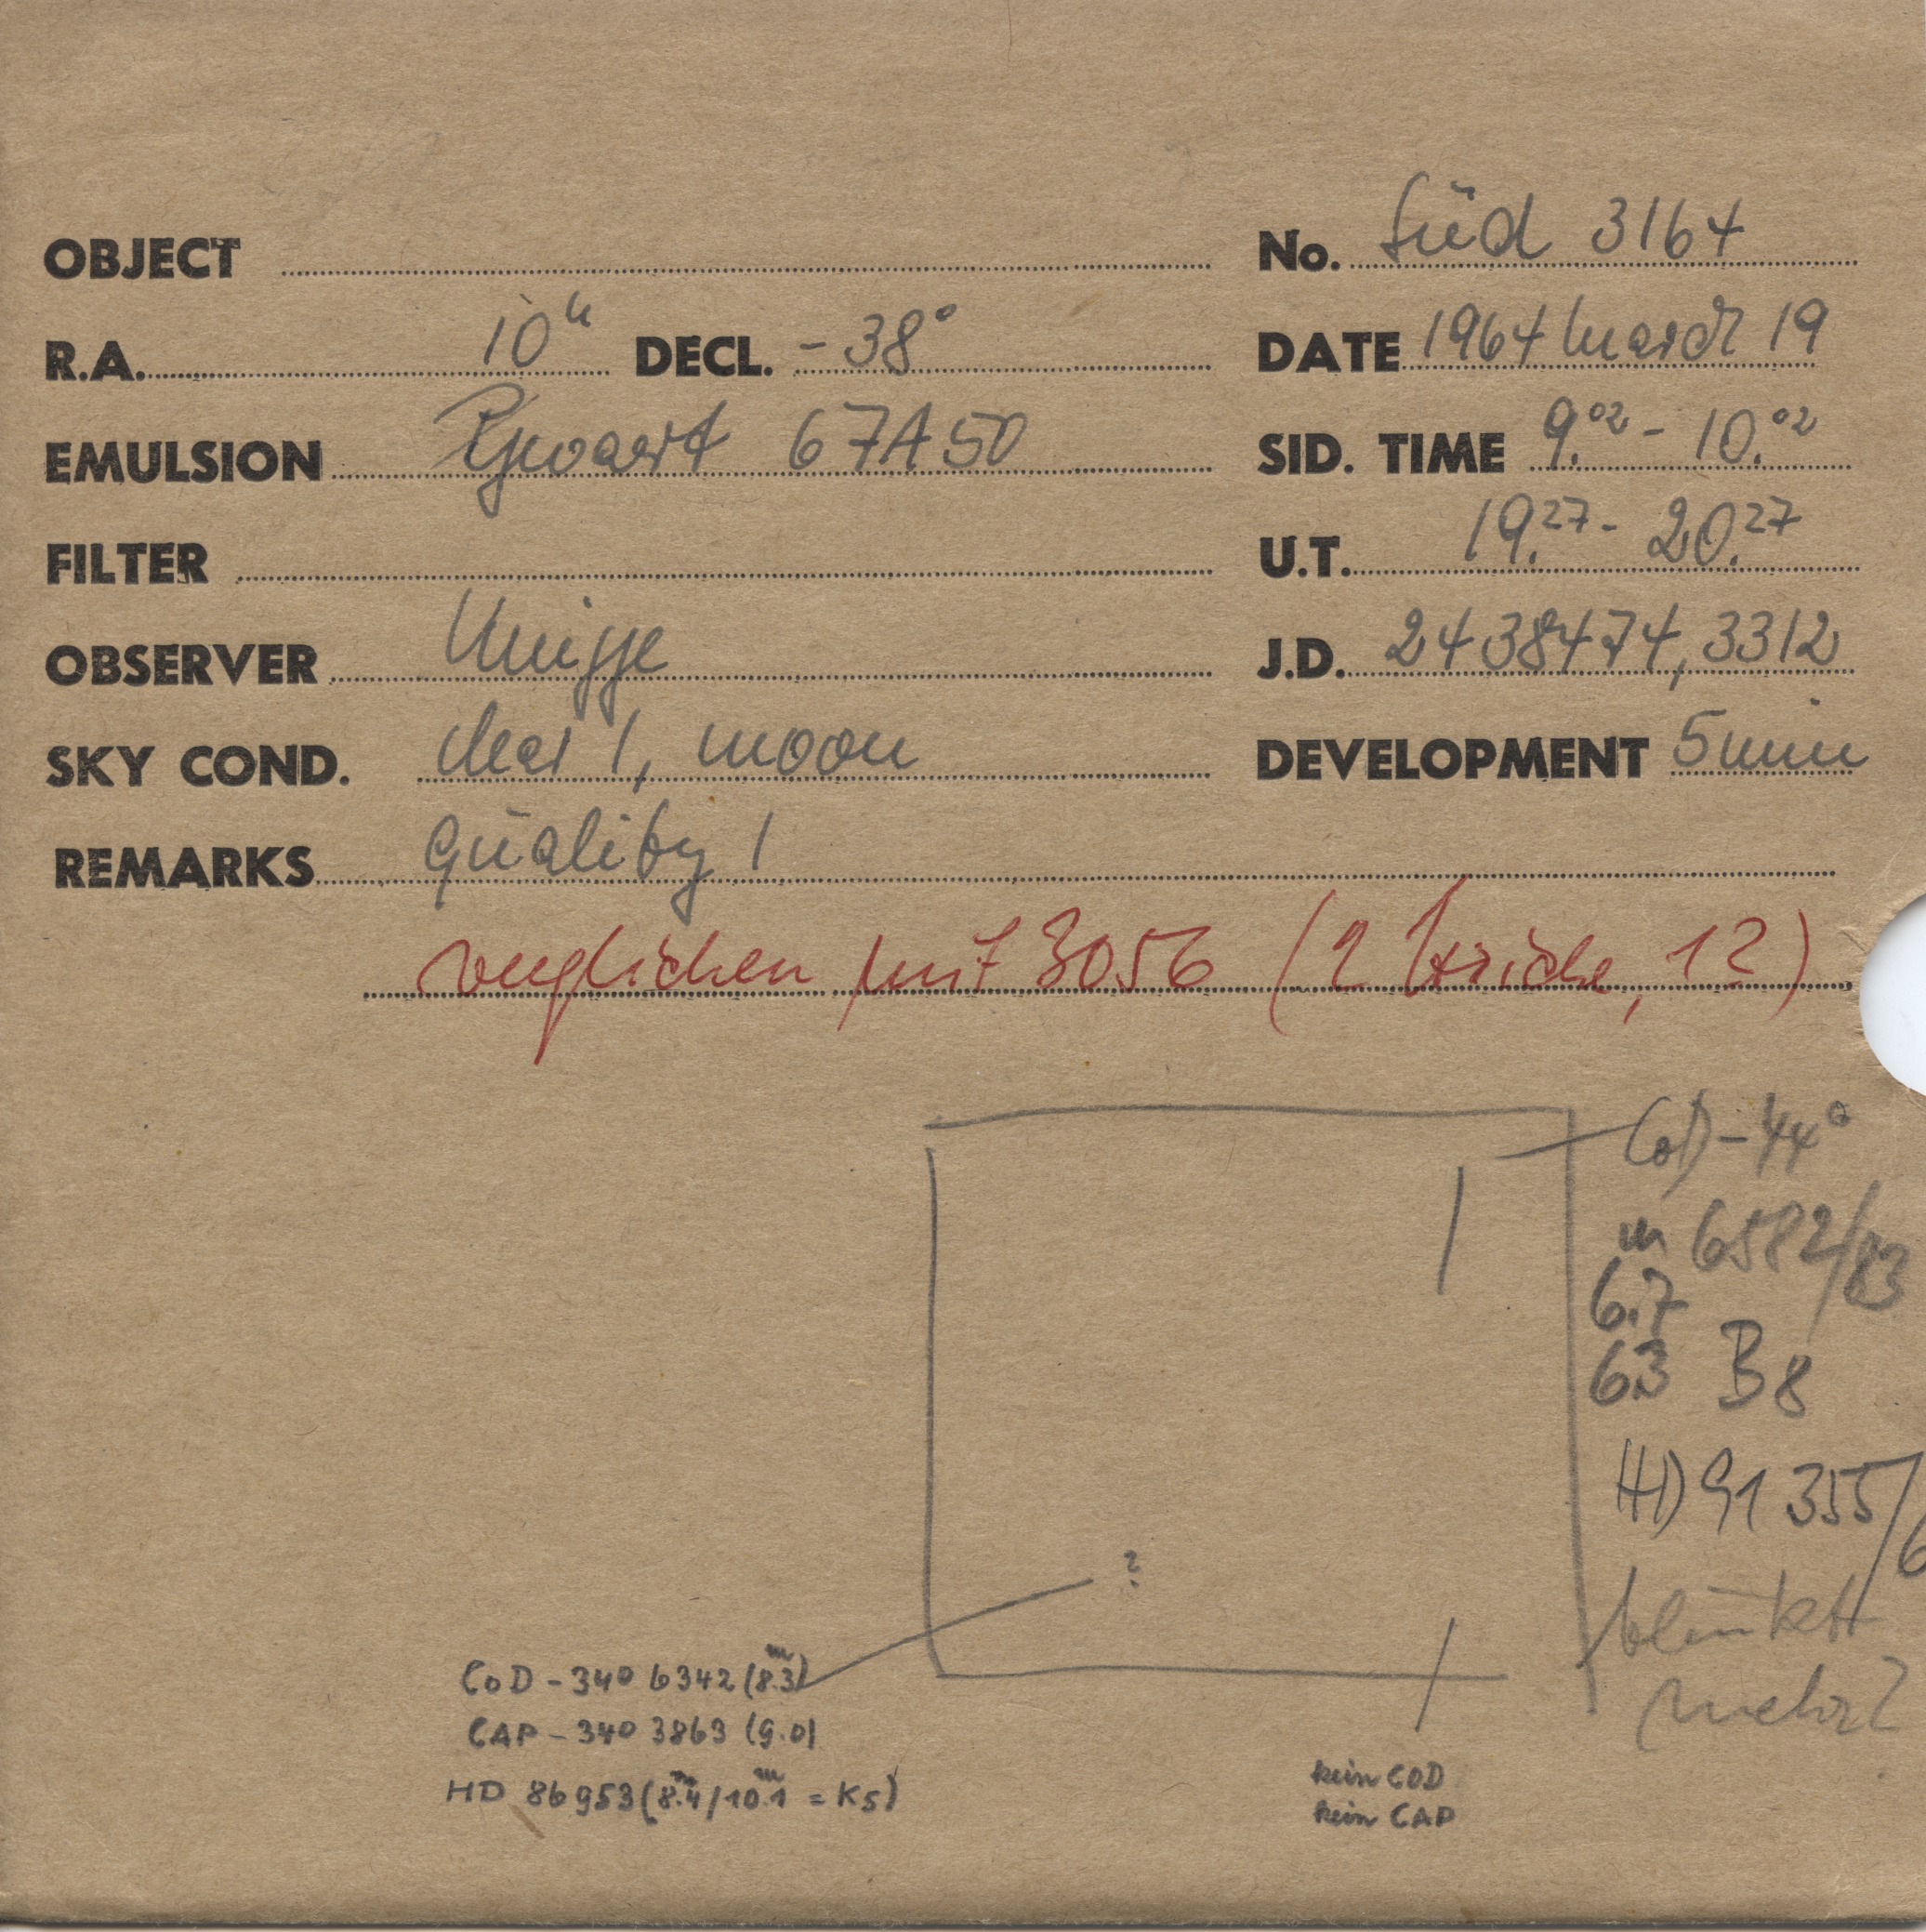 OBJECT
No. Süd 3164
R.A. 10h DECL. -38°
DATE 1964 March 19
EMULSION Gevaert 67A50
SID. TIME 9.02 - 10.02
FILTER
U.T. 19.27 - 20.27
OBSERVER
J.D. 2438474,3312
SKY COND. clear 1, moon
DEVELOPMENT 5 min
REMARKS Quality 1
verglichen mit 3056 (2 Striche, 1?)
CoD -44°
m 6582/83
6.7
6.3 B8
HD 91 355/6
?
blinkt
mehr?
CoD -34° 6342 (8.3m)
CAP -34° 3863 (9.0)
HD 86953 (8.4m/10.1m = K5)
kein COD
kein CAP